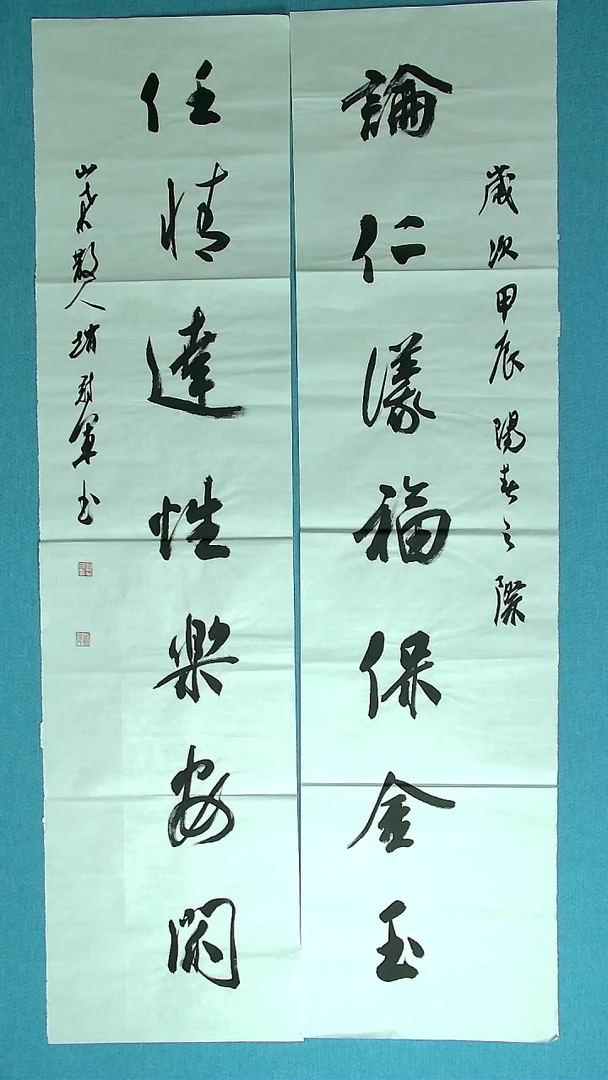 歲次甲辰陽春之際
論仁議福保金玉
任情達性樂安閑
散人趙 軍書